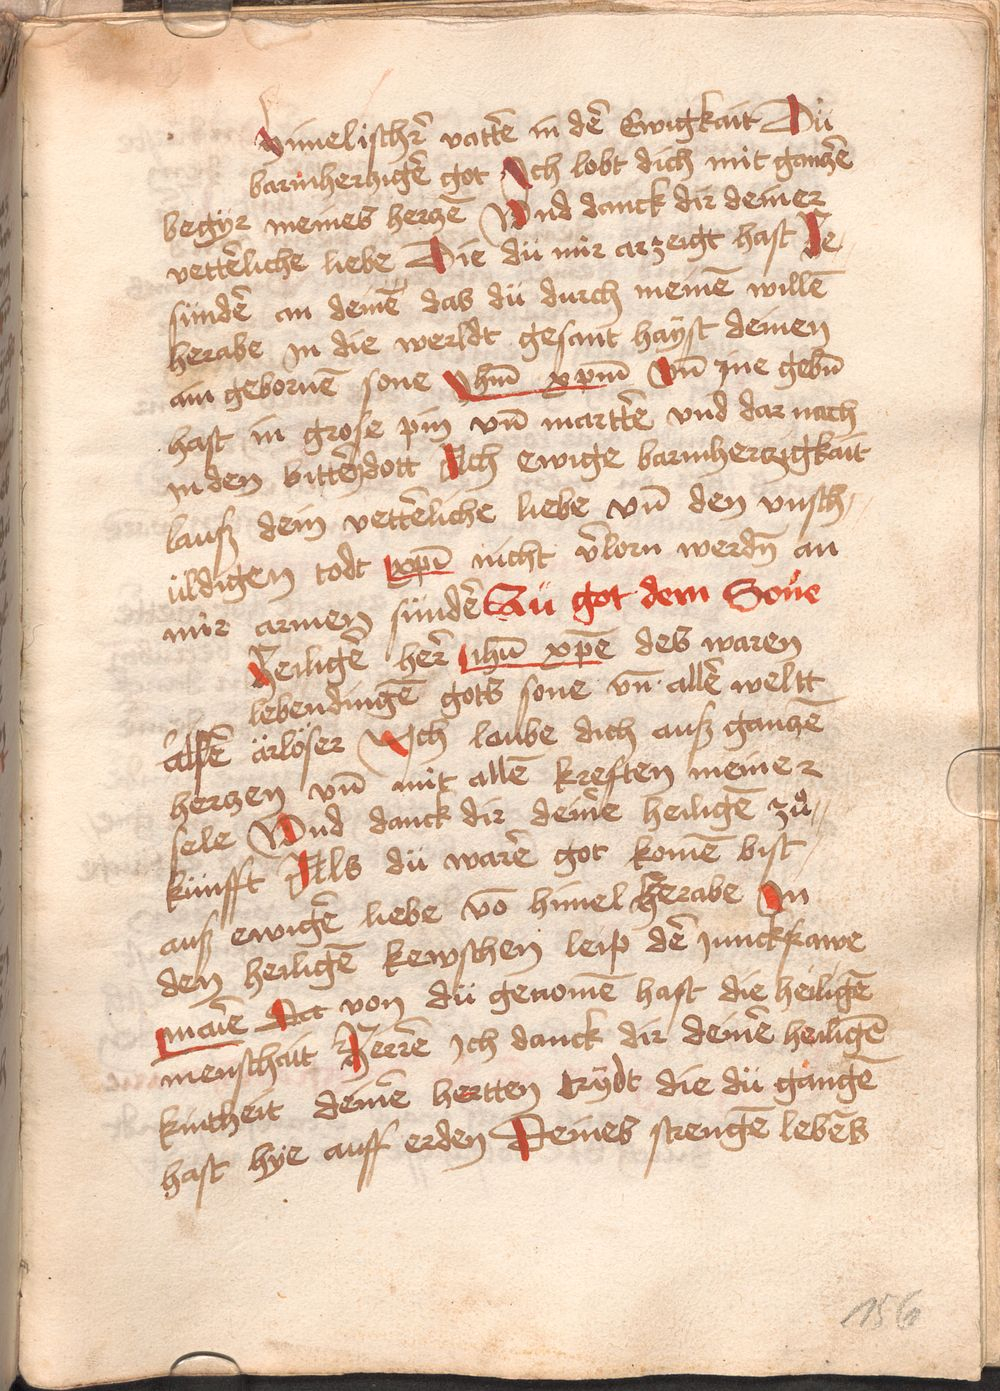 himelischr̄ vattē in dē Ewigkait Dü
barmherczigē got Ich lobt dich mit ganczē
begyr meines herczē Vnd danck dir deiner
vettērliche liebe Die dü mir arzeigt hast
sündē an deinē das dü durch meinē willē
herabe in die werldt gesant hayst deinen
ain gebornē sone Jhm̄ xpm̄ vn̄ ine gebn̄
hast in grose pin vn̄ marttē vnd dar nach
in den bittēn dott Ach ewige barmherczigkait
lauß dein vettērliche liebe vn̄ den vnsch//
üldigen todt xpī nicht v̄lorn werdn̄ an
mir armen sündē Zü got dem Sone
Heiligē her̄ ihū xpē des waren
lebendingē gots sone vn̄ allē weltt
ärlöser Ich laube dich auß ganczē
herczen vn̄ mit allē kreften meiner
sele Vnd danck dir deinē heiligē zů//
künfft Als dü warē got komē bist
auß ewigē liebe vō himel herabe In
den heiligē kewschen leip dē junckfrawe
marē Dar von dü genomē hast die heiligē
menschait Herrē Ich danck dir deinē heiligē
kintheit deinē hertten die dü gangē
hast hye auff erden Deines strengē lebēs
156